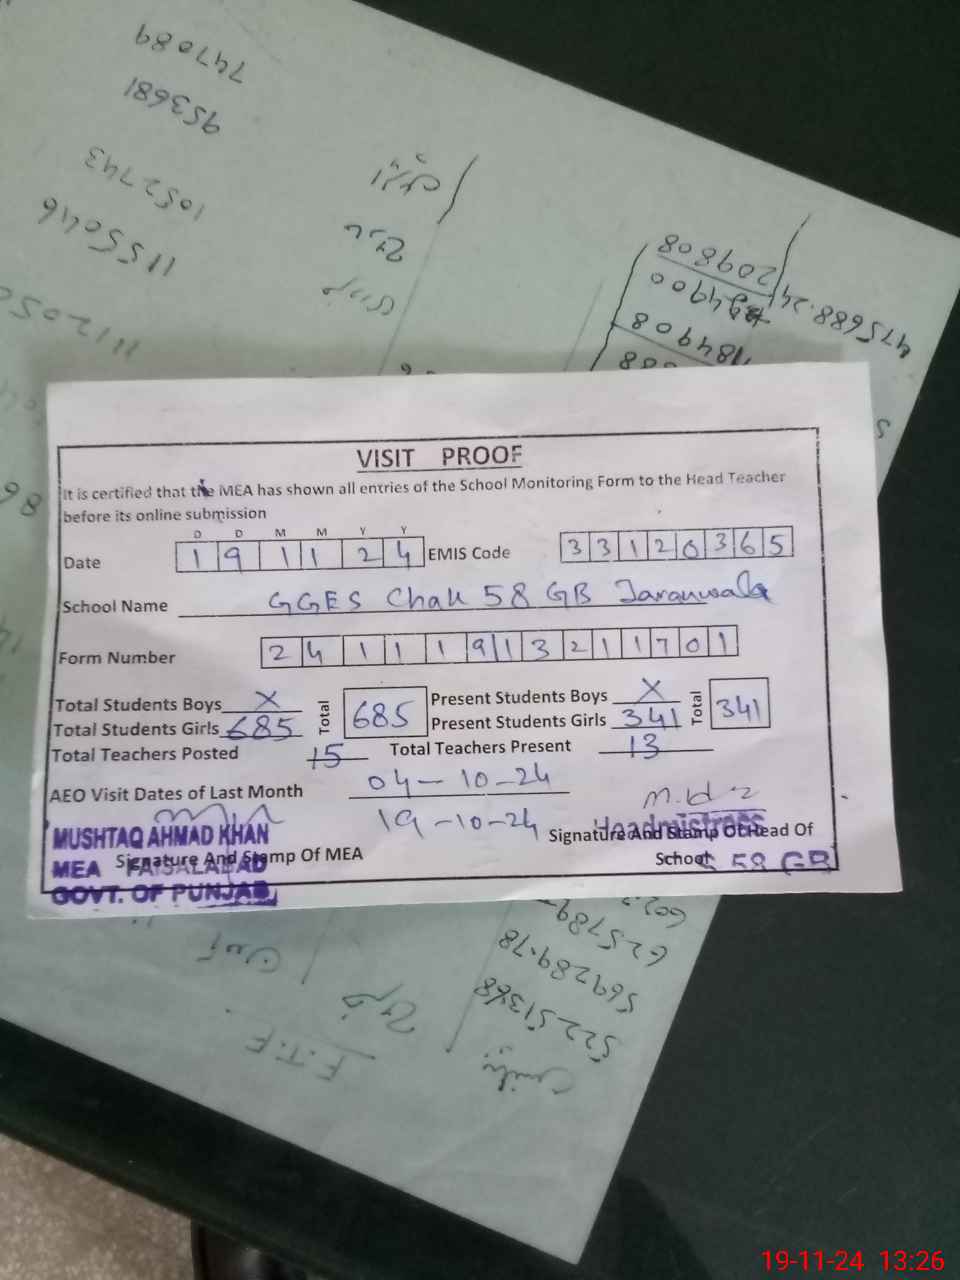 747089
953681
1052743
1155046
475688.24
209808
24900
184908
VISIT PROOF
It is certified that the MEA has shown all entries of the School Monitoring Form to the Head Teacher
before its online submission
D D M M Y Y
Date 19 11 24 EMIS Code 33120365
School Name GGES Chak 58 GB Jaranwala
Form Number 24111913211701
Total Students Boys X Total 685 Present Students Boys X Total 341
Total Students Girls 685 Present Students Girls 341
Total Teachers Posted 15 Total Teachers Present 13
AEO Visit Dates of Last Month 04-10-24
19-10-24
MUSHTAQ AHMAD KHAN
MEA FAISALABAD
GOVT. OF PUNJAB
Signature And Stamp Of MEA
Headmistress
Signature And Stamp Of Head Of
School
58 GB
625789
569289.78
F.T.F
19-11-24 13:26